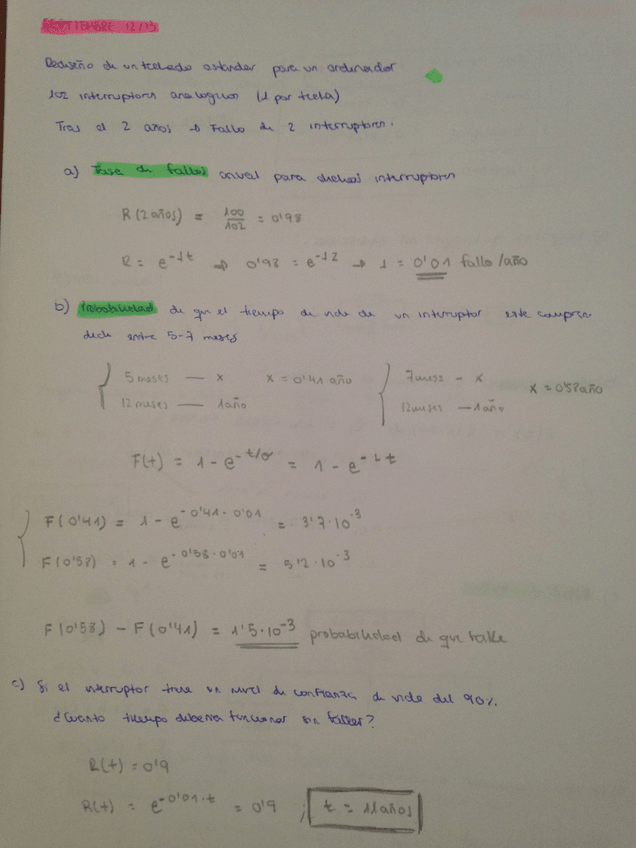 SEPTIEMBRE 12/13
Rediseño de un teclado estándar para un ordenador
102 interruptores analógicos (1 por tecla)
Tras el 2 años → Fallo de 2 interruptores.
a) Tasa de fallos anual para dichos interruptores
R(2 años) = 100/102 = 0'98
R = e^-λt ⇒ 0'98 = e^-λ2 → λ = 0'01 fallo/año
b) Probabilidad de que el tiempo de vida de un interruptor esté compren
dido entre 5-7 meses
5 meses — x x = 0'41 año 7 meses — x
12 meses — 1 año 12 meses — 1 año x = 0'58 año
F(t) = 1 - e^-t/σ = 1 - e^-λt
F(0'41) = 1 - e^-0'41·0'01 = 3'7·10^-3
F(0'58) = 1 - e^-0'58·0'01 = 5'2·10^-3
F(0'58) - F(0'41) = 1'5·10^-3 probabilidad de que falle
c) Si el interruptor tiene un nivel de confianza de vida del 90%
¿Cuanto tiempo debería funcionar sin fallar?
R(t) = 0'9
R(t) = e^-0'01·t = 0'9 ; t = 11 años